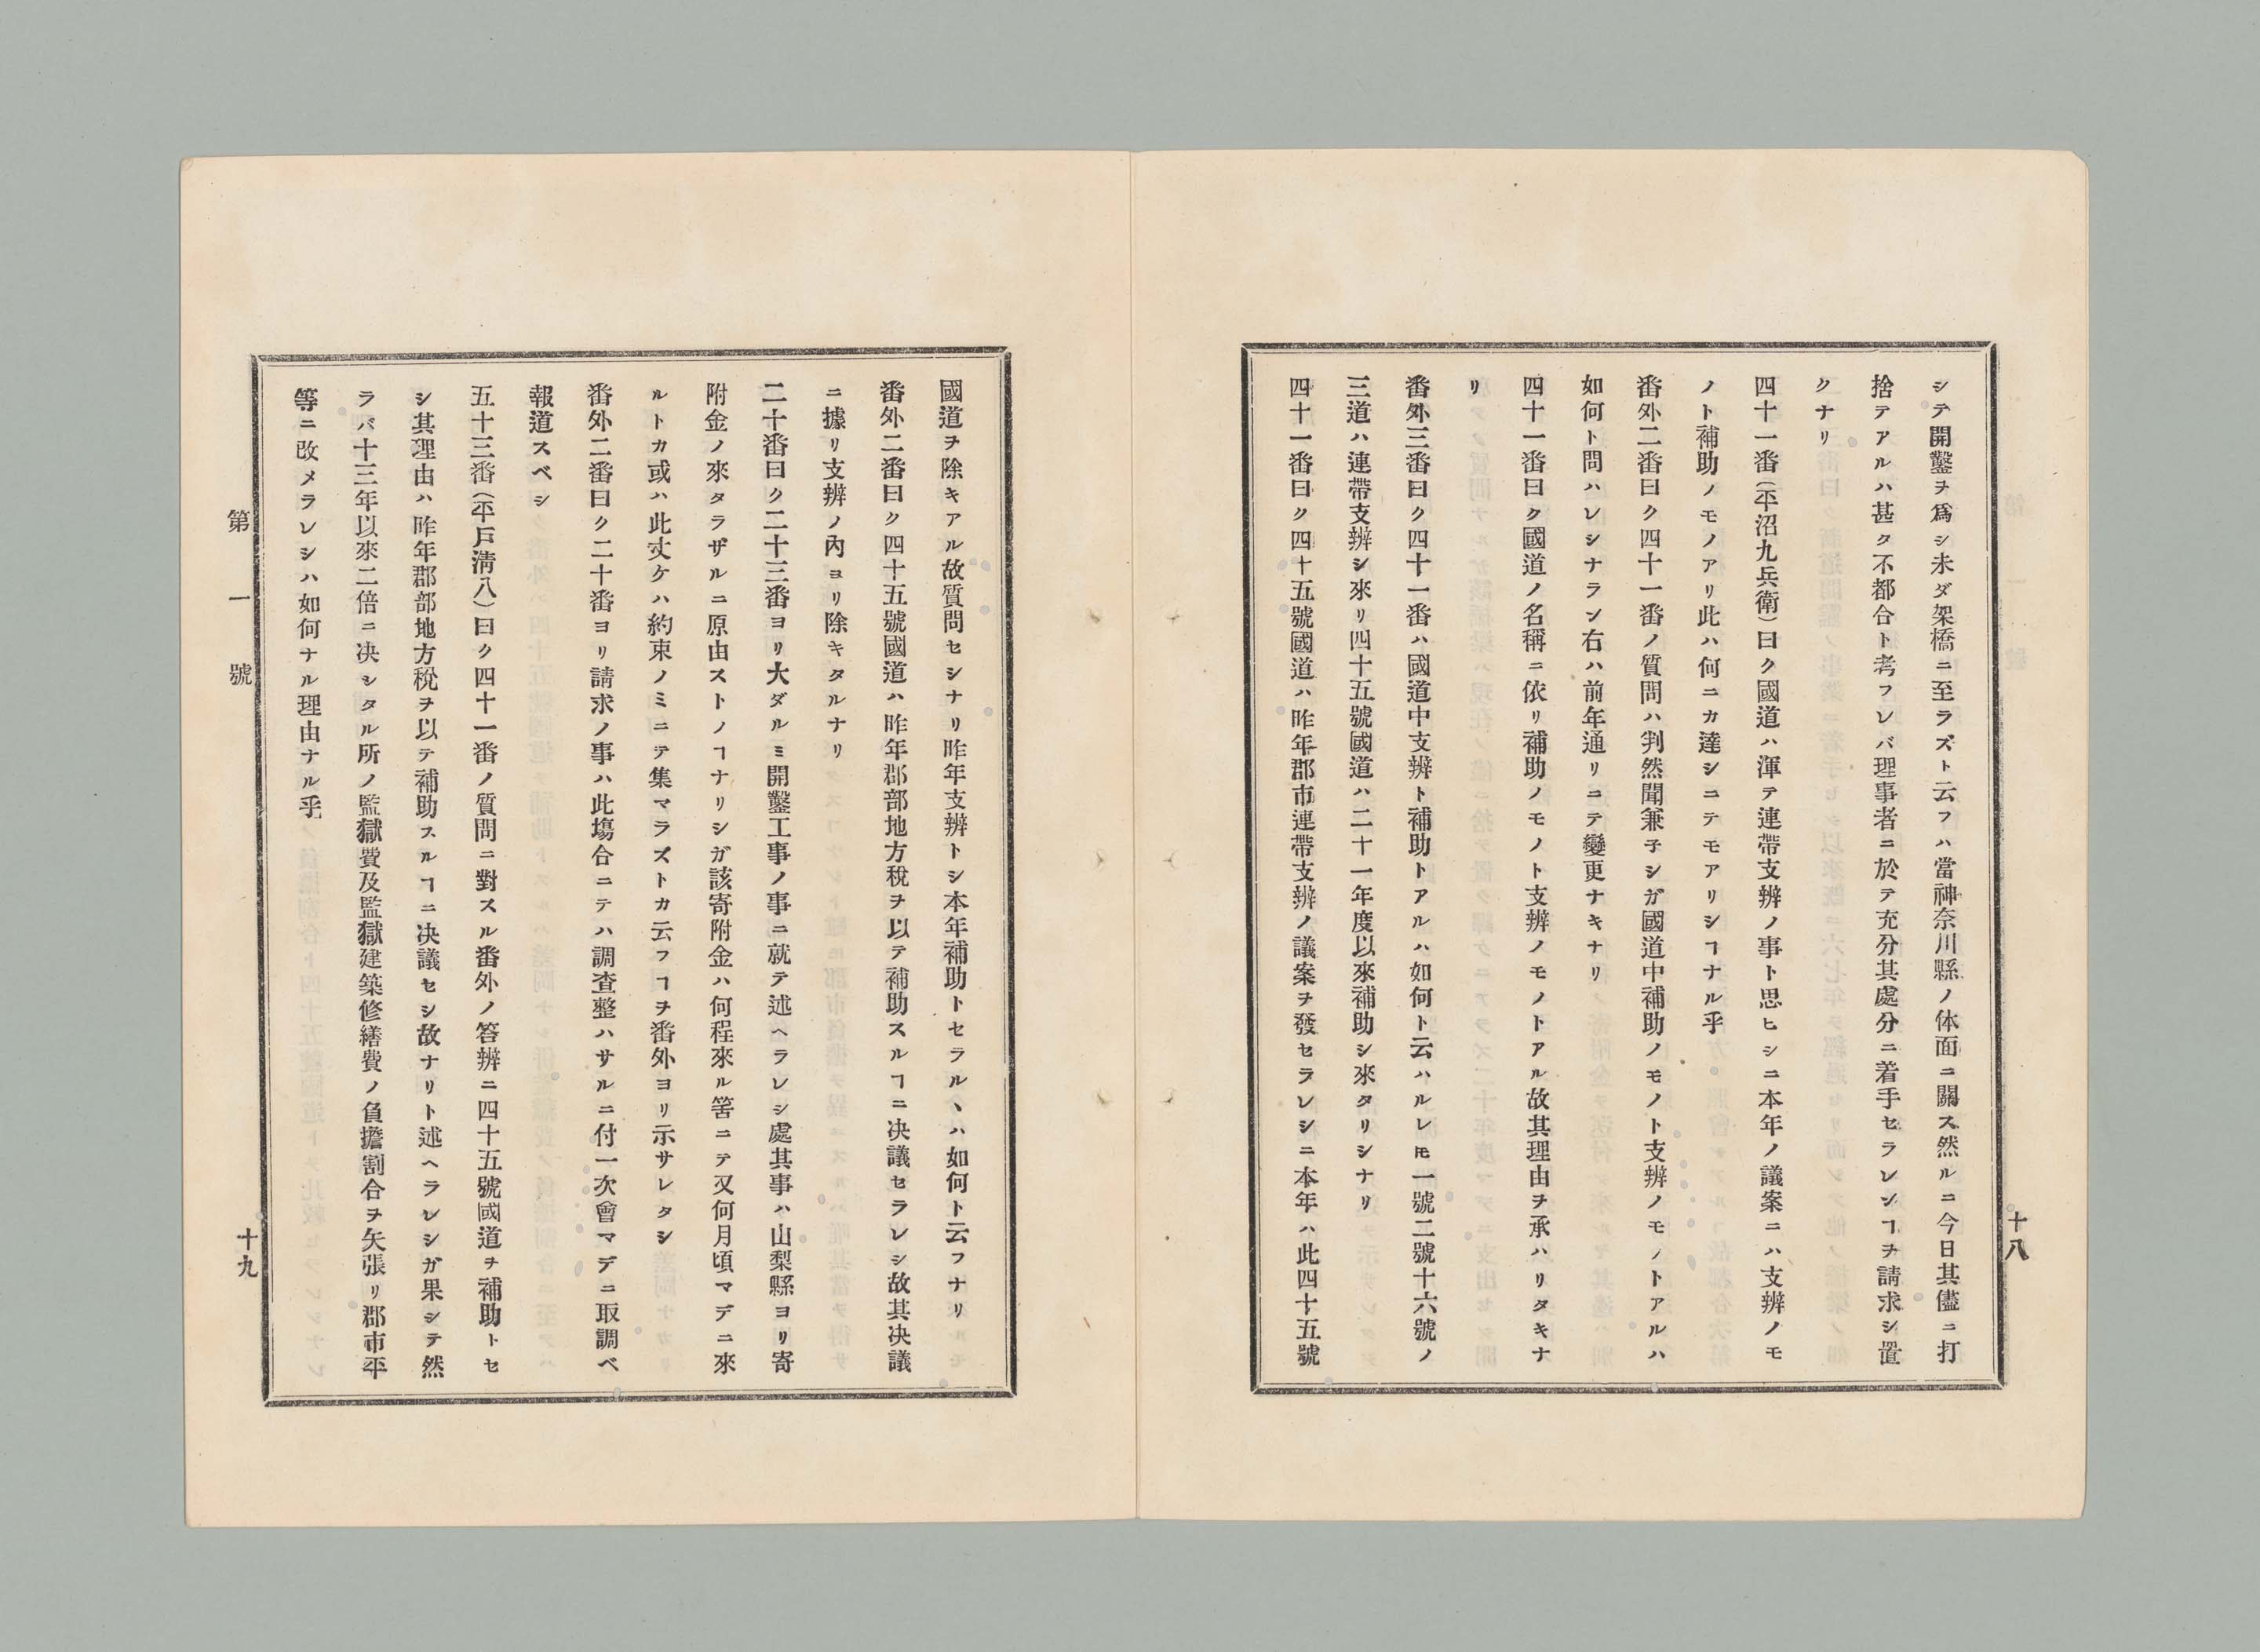 十八
シテ開鑿ヲ爲シ未ダ架橋ニ至ラズト云フハ當神奈川縣ノ体面ニ關ス然ルニ今日其儘ニ打
捨テアルハ甚タ不都合ト考フレバ理事者ニ於テ充分其處分ニ着手セラレンヿヲ請求シ置
クナリ
四十一番(平沼九兵衛)曰ク國道ハ渾テ連帶支辨ノ事ト思ヒシニ本年ノ議案ニハ支辨ノモ
ノト補助ノモノアリ此ハ何ニカ達シニテモアリシヿナル乎
番外二番曰ク四十一番ノ質問ハ判然聞兼子シガ國道中補助ノモノト支辨ノモノトアルハ
如何ト問ハレシナラン右ハ前年通リニテ變更ナキナリ
四十一番曰ク國道ノ名稱ニ依リ補助ノモノト支辨ノモノトアル故其理由ヲ承ハリタキナ
リ
番外三番曰ク四十一番ハ國道中支辨ト補助トアルハ如何ト云ハルレㇳモ一號二號十六號ノ
三道ハ連帶支辨シ來リ四十五號國道ハ二十一年度以來補助シ來タリシナリ
四十一番曰ク四十五號國道ハ昨年郡市連帶支辨ノ議案ヲ發セラレシニ本年ハ此四十五號
國道ヲ除キアル故質問セシナリ昨年支辨トシ本年補助トセラルヽハ如何ト云フナリ
番外二番曰ク四十五號國道ハ昨年郡部地方稅ヲ以テ補助スルヿニ决議セラレシ故其决議
ニ據リ支辨ノ內ヨリ除キタルナリ
二十番曰ク二十三番ヨリ大ダルミ開鑿工事ノ事ニ就テ述ヘラレシ處其事ハ山梨縣ヨリ寄
附金ノ來タラザルニ原由ストノヿナリシガ該寄附金ハ何程來ル筈ニテ又何月頃マデニ來
ルトカ或ハ此丈ケハ約束ノミニテ集マラズトカ云フヿヲ番外ヨリ示サレタシ
番外二番曰ク二十番ヨリ請求ノ事ハ此塲合ニテハ調査整ハサルニ付一次會マデニ取調ベ
報道スベシ
五十三番(平戶淸八)曰ク四十一番ノ質問ニ對スル番外ノ答辨ニ四十五號國道ヲ補助トセ
シ其理由ハ昨年郡部地方稅ヲ以テ補助スルヿニ决議セシ故ナリト述ヘラレシガ果シテ然
ラバ十三年以來二倍ニ决シタル所ノ監獄費及監獄建築修繕費ノ負擔割合ヲ矢張リ郡市平
等ニ改メラレシハ如何ナル理由ナル乎
第一號
十九